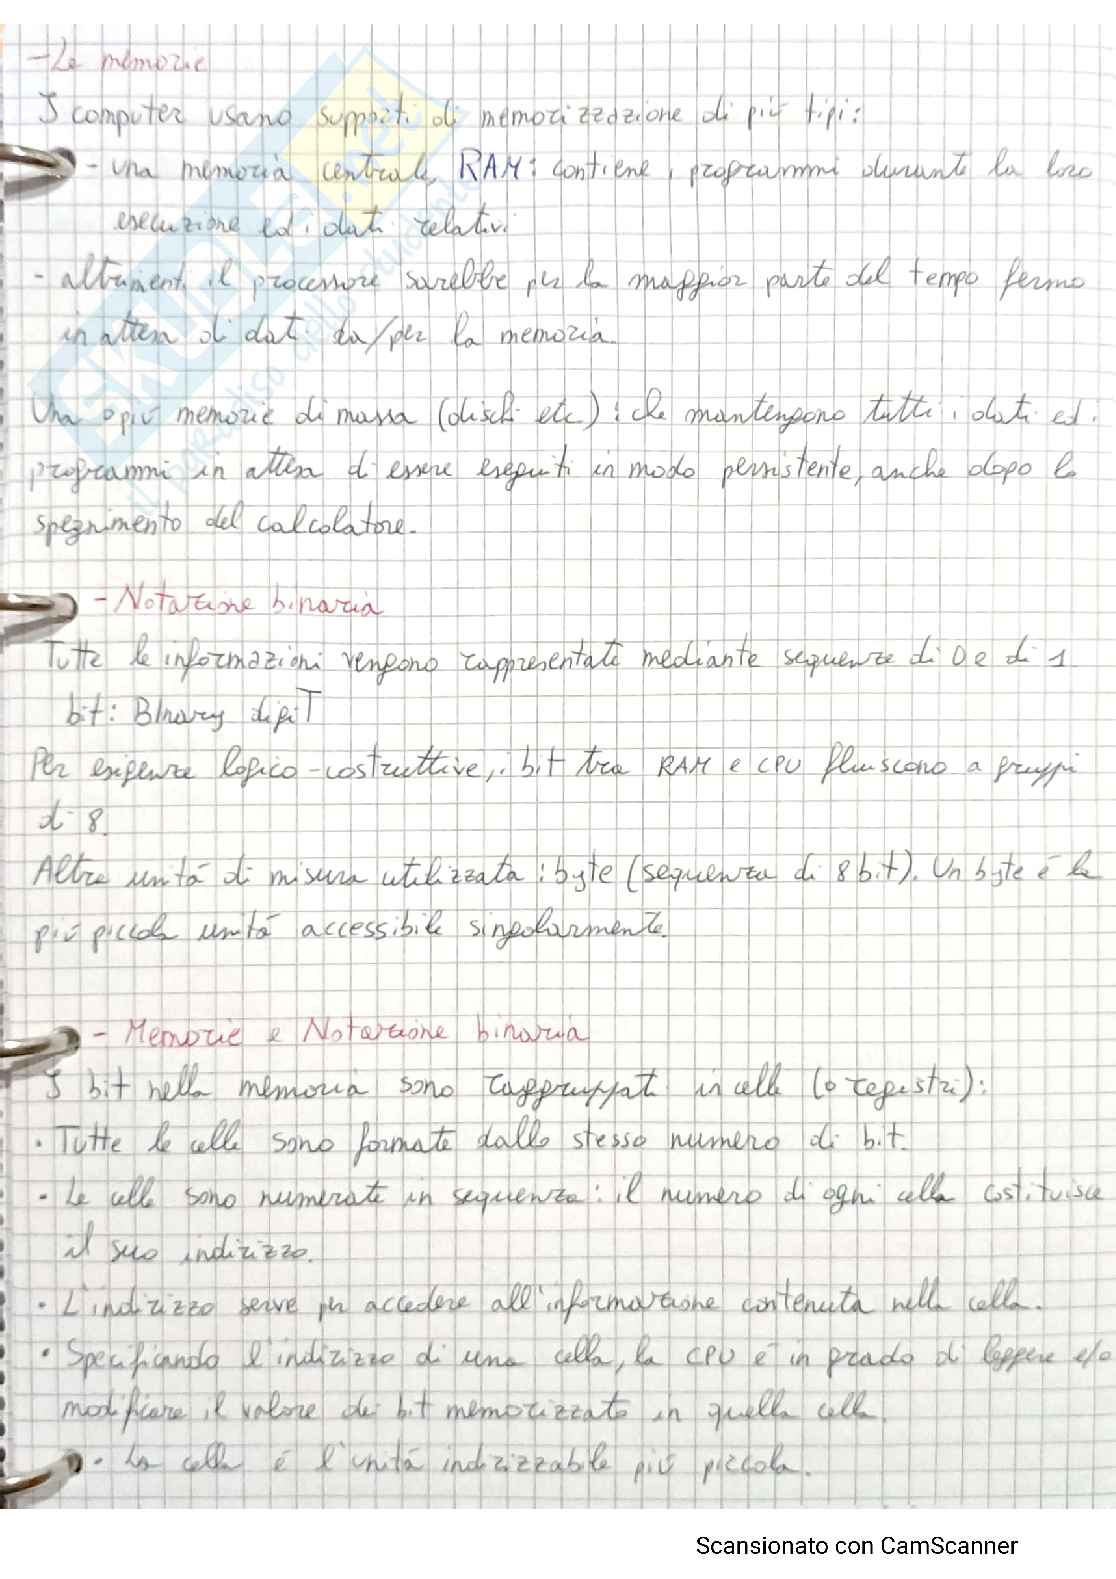 - Le memorie
I computer usano supporti di memorizzazione di più tipi:
- una memoria centrale RAM: contiene i programmi durante la loro
esecuzione ed i dati relativi
- altrimenti il processore sarebbe per la maggior parte del tempo fermo
in attesa di dati da/per la memoria.
Una o più memorie di massa (dischi etc): che mantengono tutti i dati ed i
programmi in attesa di essere eseguiti in modo persistente, anche dopo lo
spegnimento del calcolatore.
- Notazione binaria
Tutte le informazioni vengono rappresentate mediante sequenze di 0 e di 1
bit: BInary digiT
Per esigenze logico-costruttive, i bit tra RAM e CPU fluiscono a gruppi
di 8.
Altre unità di misura utilizzata: byte (sequenza di 8 bit). Un byte è la
più piccola unità accessibile singolarmente.
- Memorie e Notazione binaria
I bit nella memoria sono raggruppati in celle (o registri):
• Tutte le celle sono formate dallo stesso numero di bit.
• Le celle sono numerate in sequenza: il numero di ogni cella costituisce
il suo indirizzo.
• L'indirizzo serve per accedere all'informazione contenuta nella cella.
• Specificando l'indirizzo di una cella, la CPU è in grado di leggere e/o
modificare il valore dei bit memorizzato in quella cella.
• La cella è l'unità indirizzabile più piccola.
SKUOLA.net
il paradiso dello studente
Scansionato con CamScanner